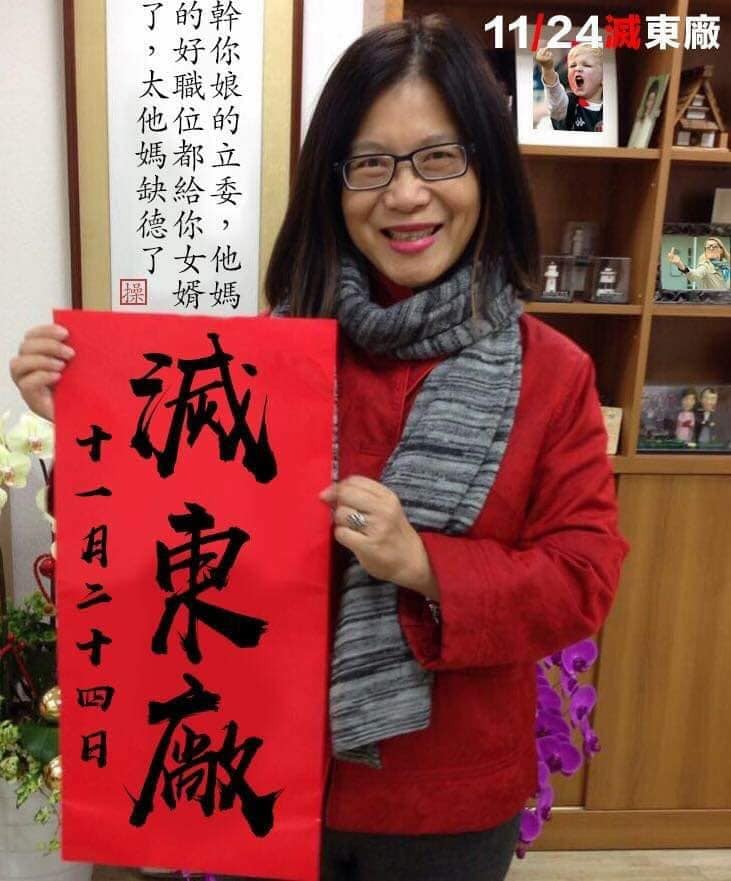 11/24滅東廠
幹你娘的立委，他媽
的好職位都給你女婿
了，太他媽缺德了
操
滅東廠
十一月二十四日